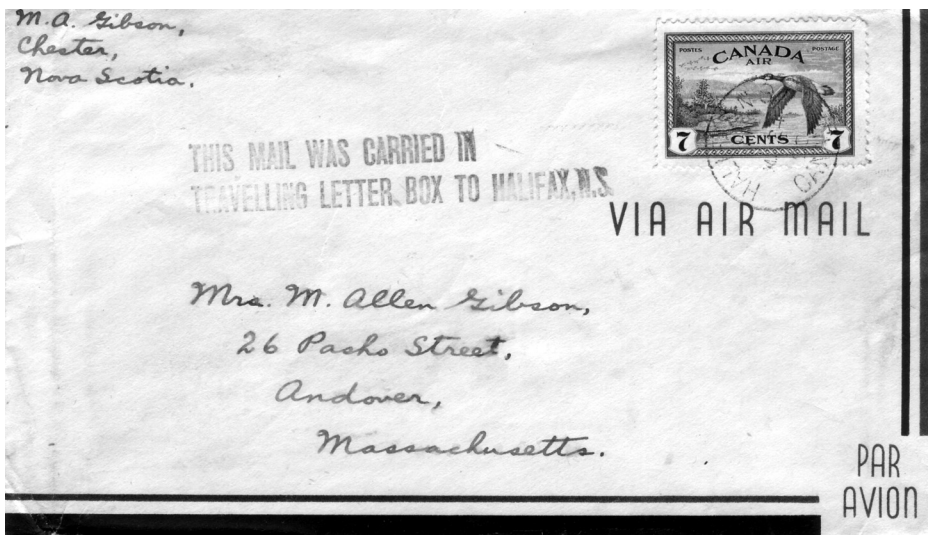 M.A. Gibson,
Chester,
Nova Scotia.
POSTES POSTAGE
CANADA
AIR
7 CENTS 7
HALI CAN
THIS MAIL WAS CARRIED IN
TRAVELLING LETTER BOX TO HALIFAX, N.S.
VIA AIR MAIL
Mrs. M. Allen Gibson,
26 Pasho Street,
Andover,
Massachusetts.
PAR
AVION